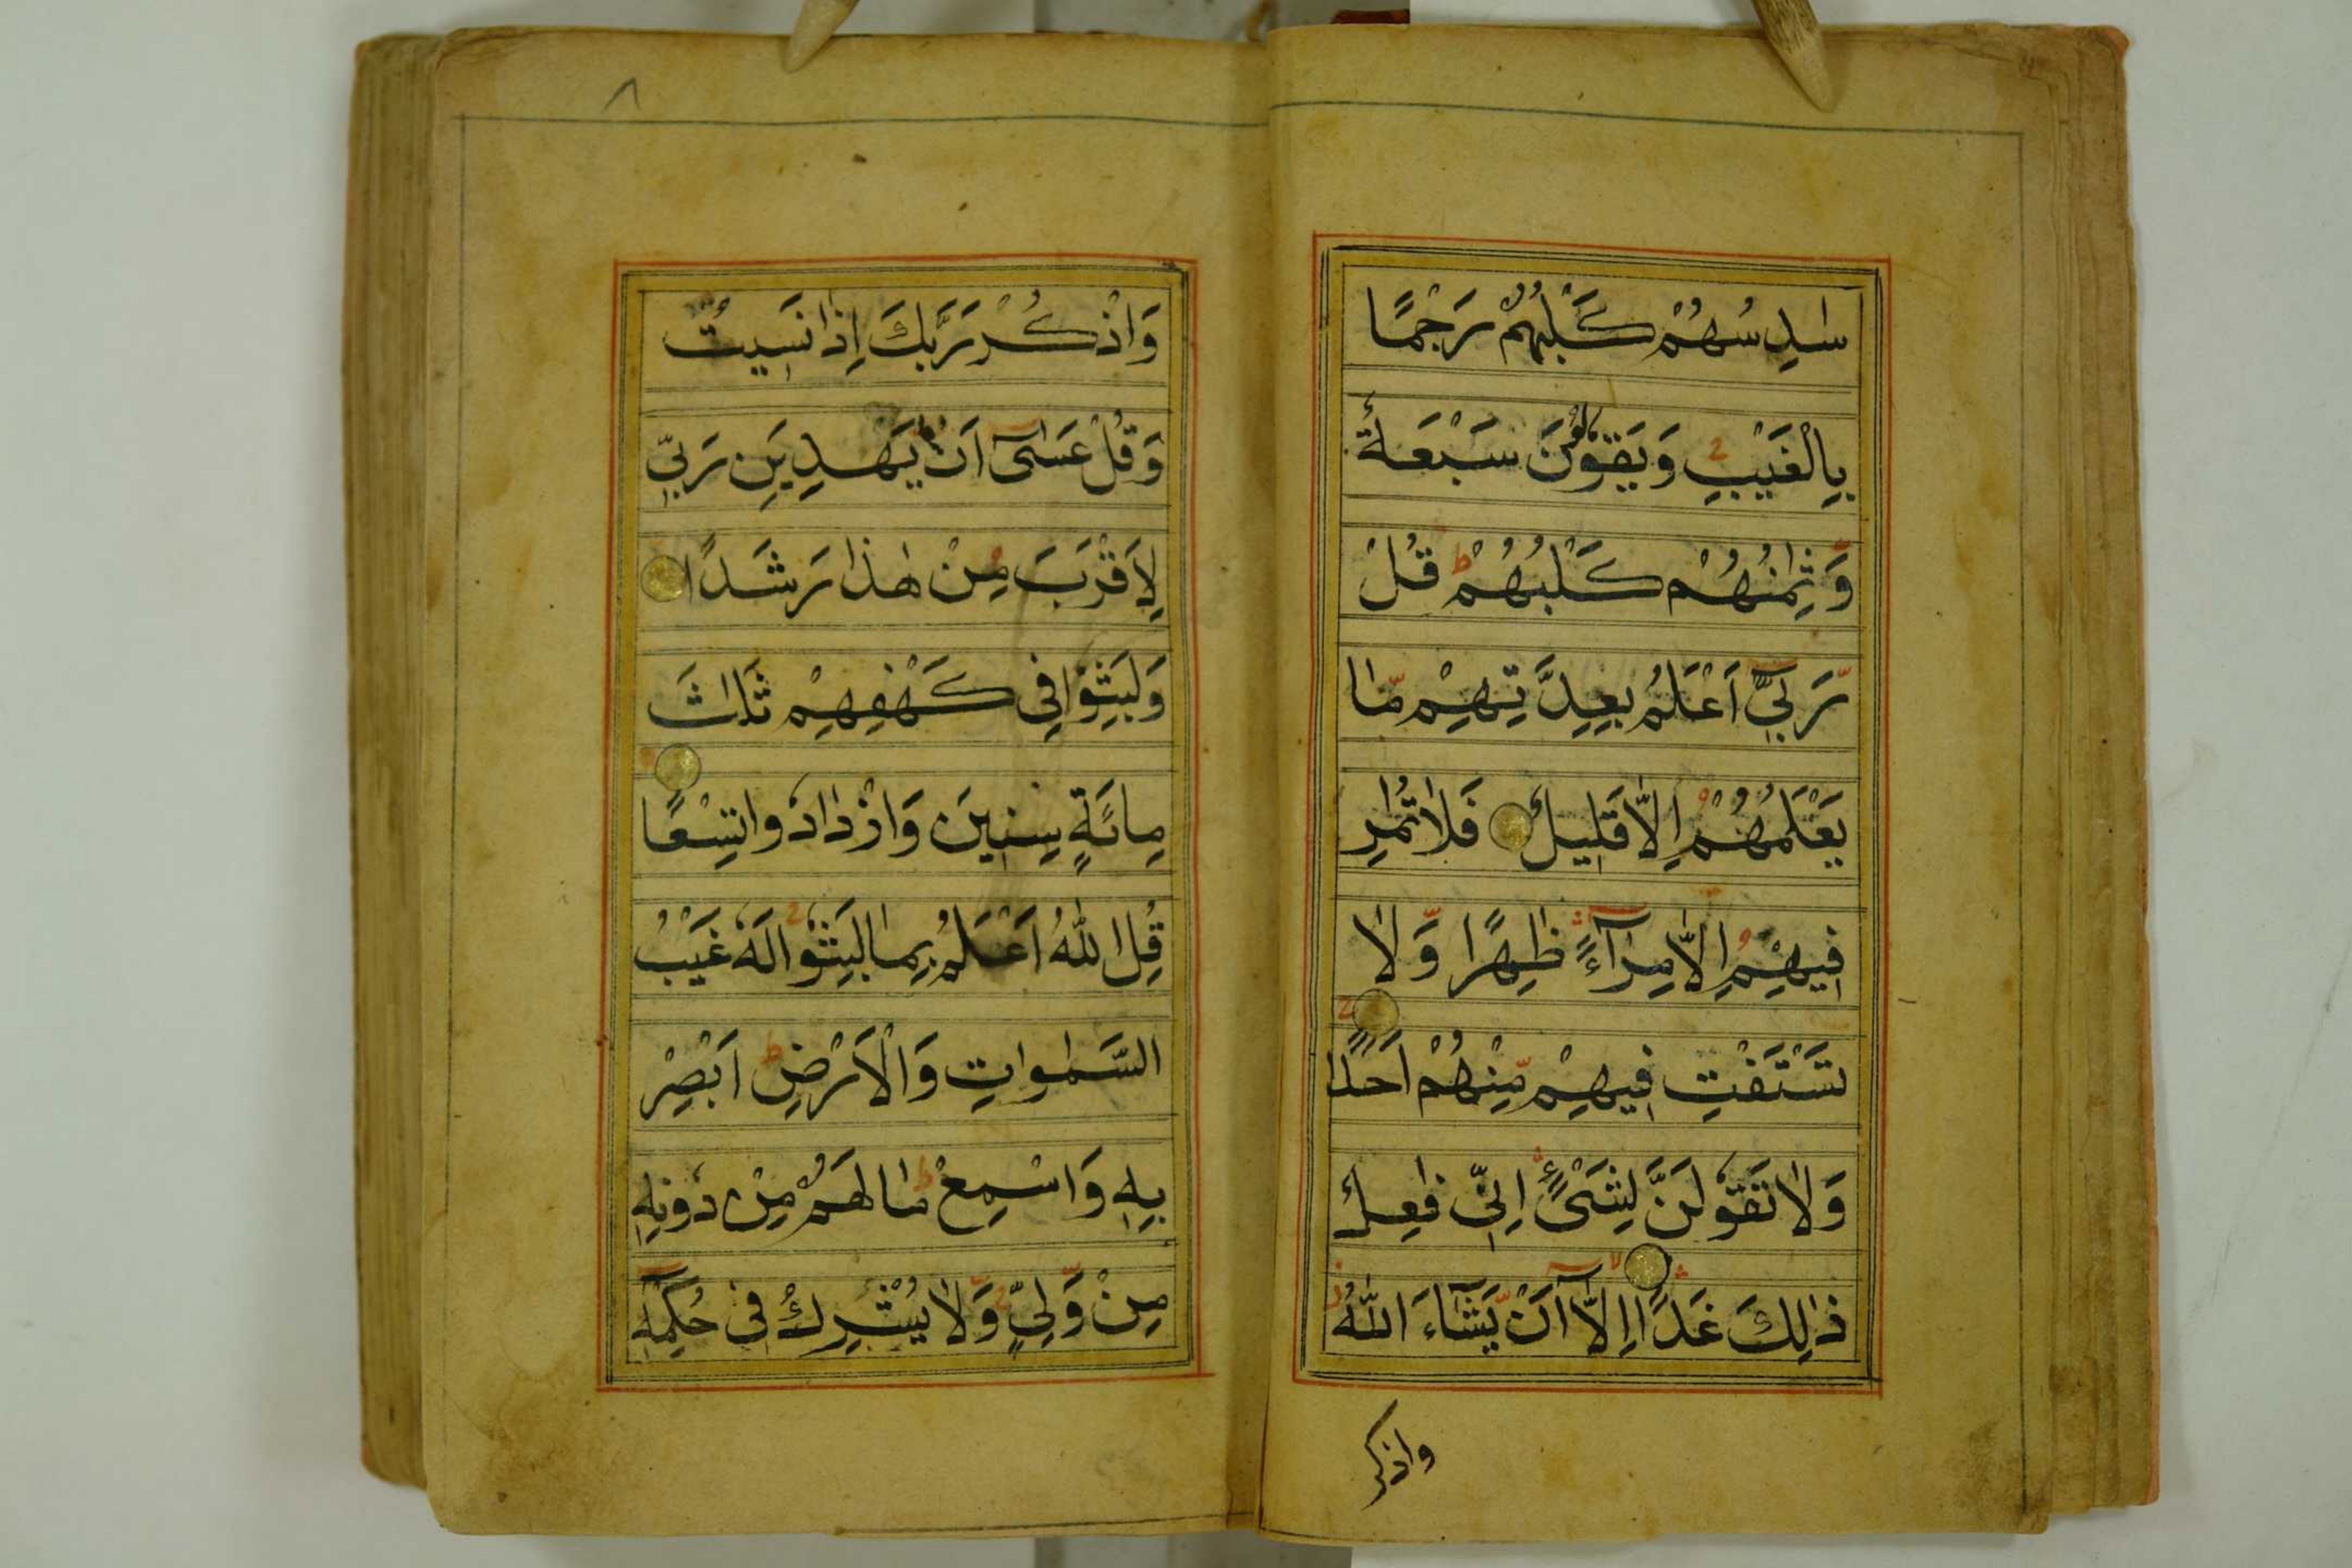 سٰدِسُهُمْ كَلْبُهُمْ رَجْمًا
بِالْغَيْبِ وَيَقُوْلُوْنَ سَبْعَةٌ
وَّثٰمِنُهُمْ كَلْبُهُمْ ط قُلْ
رَّبِّيْٓ اَعْلَمُ بِعِدَّتِهِمْ مَّا
يَعْلَمُهُمْ اِلَّا قَلِيْلٌ فَلَا تُمَارِ
فِيْهِمْ اِلَّا مِرَآءً ظَاهِرًا وَّلَا
تَسْتَفْتِ فِيْهِمْ مِّنْهُمْ اَحَدًا
وَلَا تَقُوْلَنَّ لِشَيْءٍ اِنِّيْ فَاعِلٌ
ذٰلِكَ غَدًا اِلَّآ اَنْ يَّشَآءَ اللّٰهُ
واذكر
٨
وَاذْكُرْ رَّبَّكَ اِذَا نَسِيْتَ
وَقُلْ عَسٰٓى اَنْ يَّهْدِيَنِ رَبِّيْ
لِاَقْرَبَ مِنْ هٰذَا رَشَدًا
وَلَبِثُوْا فِيْ كَهْفِهِمْ ثَلٰثَ
مِائَةٍ سِنِيْنَ وَازْدَادُوْا تِسْعًا
قُلِ اللّٰهُ اَعْلَمُ بِمَا لَبِثُوْا لَهٗ غَيْبُ
السَّمٰوٰتِ وَالْاَرْضِ ط اَبْصِرْ
بِهٖ وَاَسْمِعْ ط مَا لَهُمْ مِّنْ دُوْنِهٖ
مِنْ وَّلِيٍّ وَّلَا يُشْرِكُ فِيْ حُكْمِهٖٓ